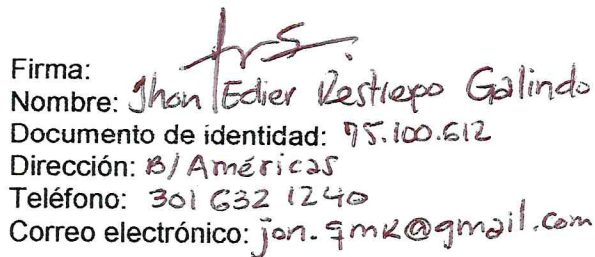 Firma:
Nombre: Jhon Edier Restrepo Galindo
Documento de identidad: 75.100.612
Dirección: B/ Américas
Teléfono: 301 632 1240
Correo electrónico: jon.qmk@gmail.com